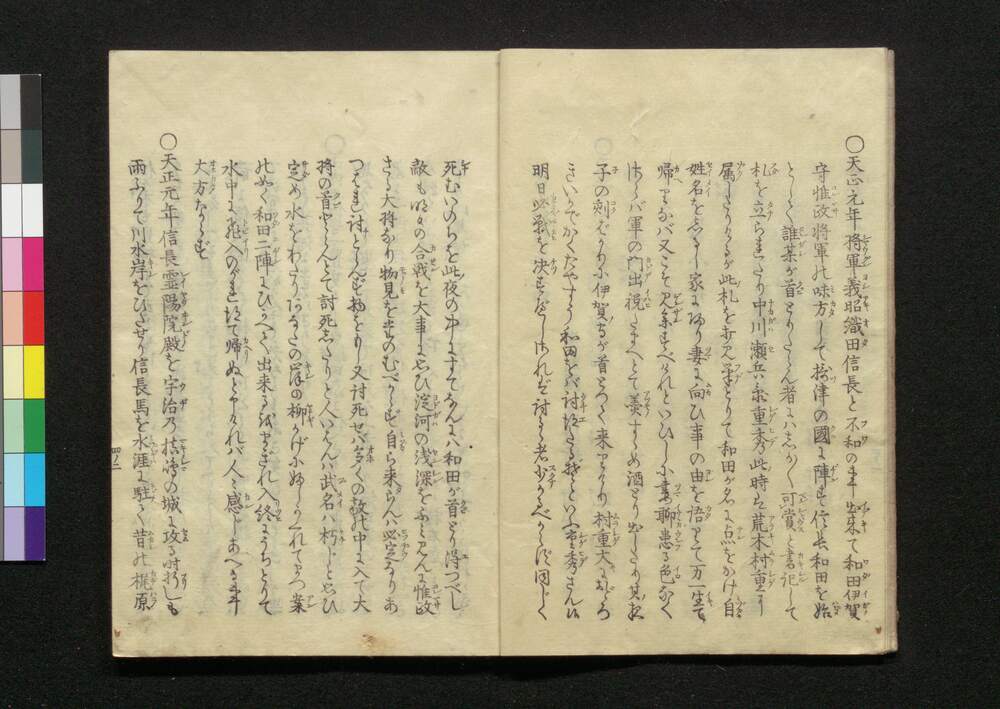 ○天正元年将軍義昭織田信長と不和の事出来て和田伊賀
守惟政将軍の味方して摂津の國に陣す信長和田を始
として誰某が首とりたらん者にはしかしか可賞と書記して
札を立られたり中川瀬兵衛重秀此時は荒木村重に
属したりけるが此札を見筆とりて和田が名に点をかけ自
姓名をしるし家に帰り妻に向ひ事の由を語りて万一生て
帰りなば又こそ見参すべけれといひしに妻聊患る色なく
さらば軍の門出祝たまへとて羹すゝめ酒とり出したり其
子の刻ばかりに伊賀守が首とつて来りけり村重大におどろき
きいかでかくたやすう和田をば討得たるぞといふ重秀さん候
明日必戦を決すべしされば討るゝ者少かるべからず同じく
死むいのちを此夜の中にすてなんには和田が首をとり得つべし
敵も明日の合戦を大事と思ひ淀河の浅深をふみ見んに惟政
さる大将なり物見を出すのむべからず自ら来らんは必定なりあ
つはれ討とらんずる物をもし又討死せば多くの敵の中に入て大
将の首とらんとて討死したりと人いはんは武名は朽じと思ひ
定め水をわたりあなたの岸の柳かげに
のごとく和田二陣にひかへて出来るを
水中に飛入のがれ得て帰ぬと申ければ人々感じあへる事
大方ならず
○天正元年信長霊陽院殿を宇治の槙嶋の城に攻る時折しも
雨ふりて川水岸をひたせり信長馬を水涯に駐て昔の梶原